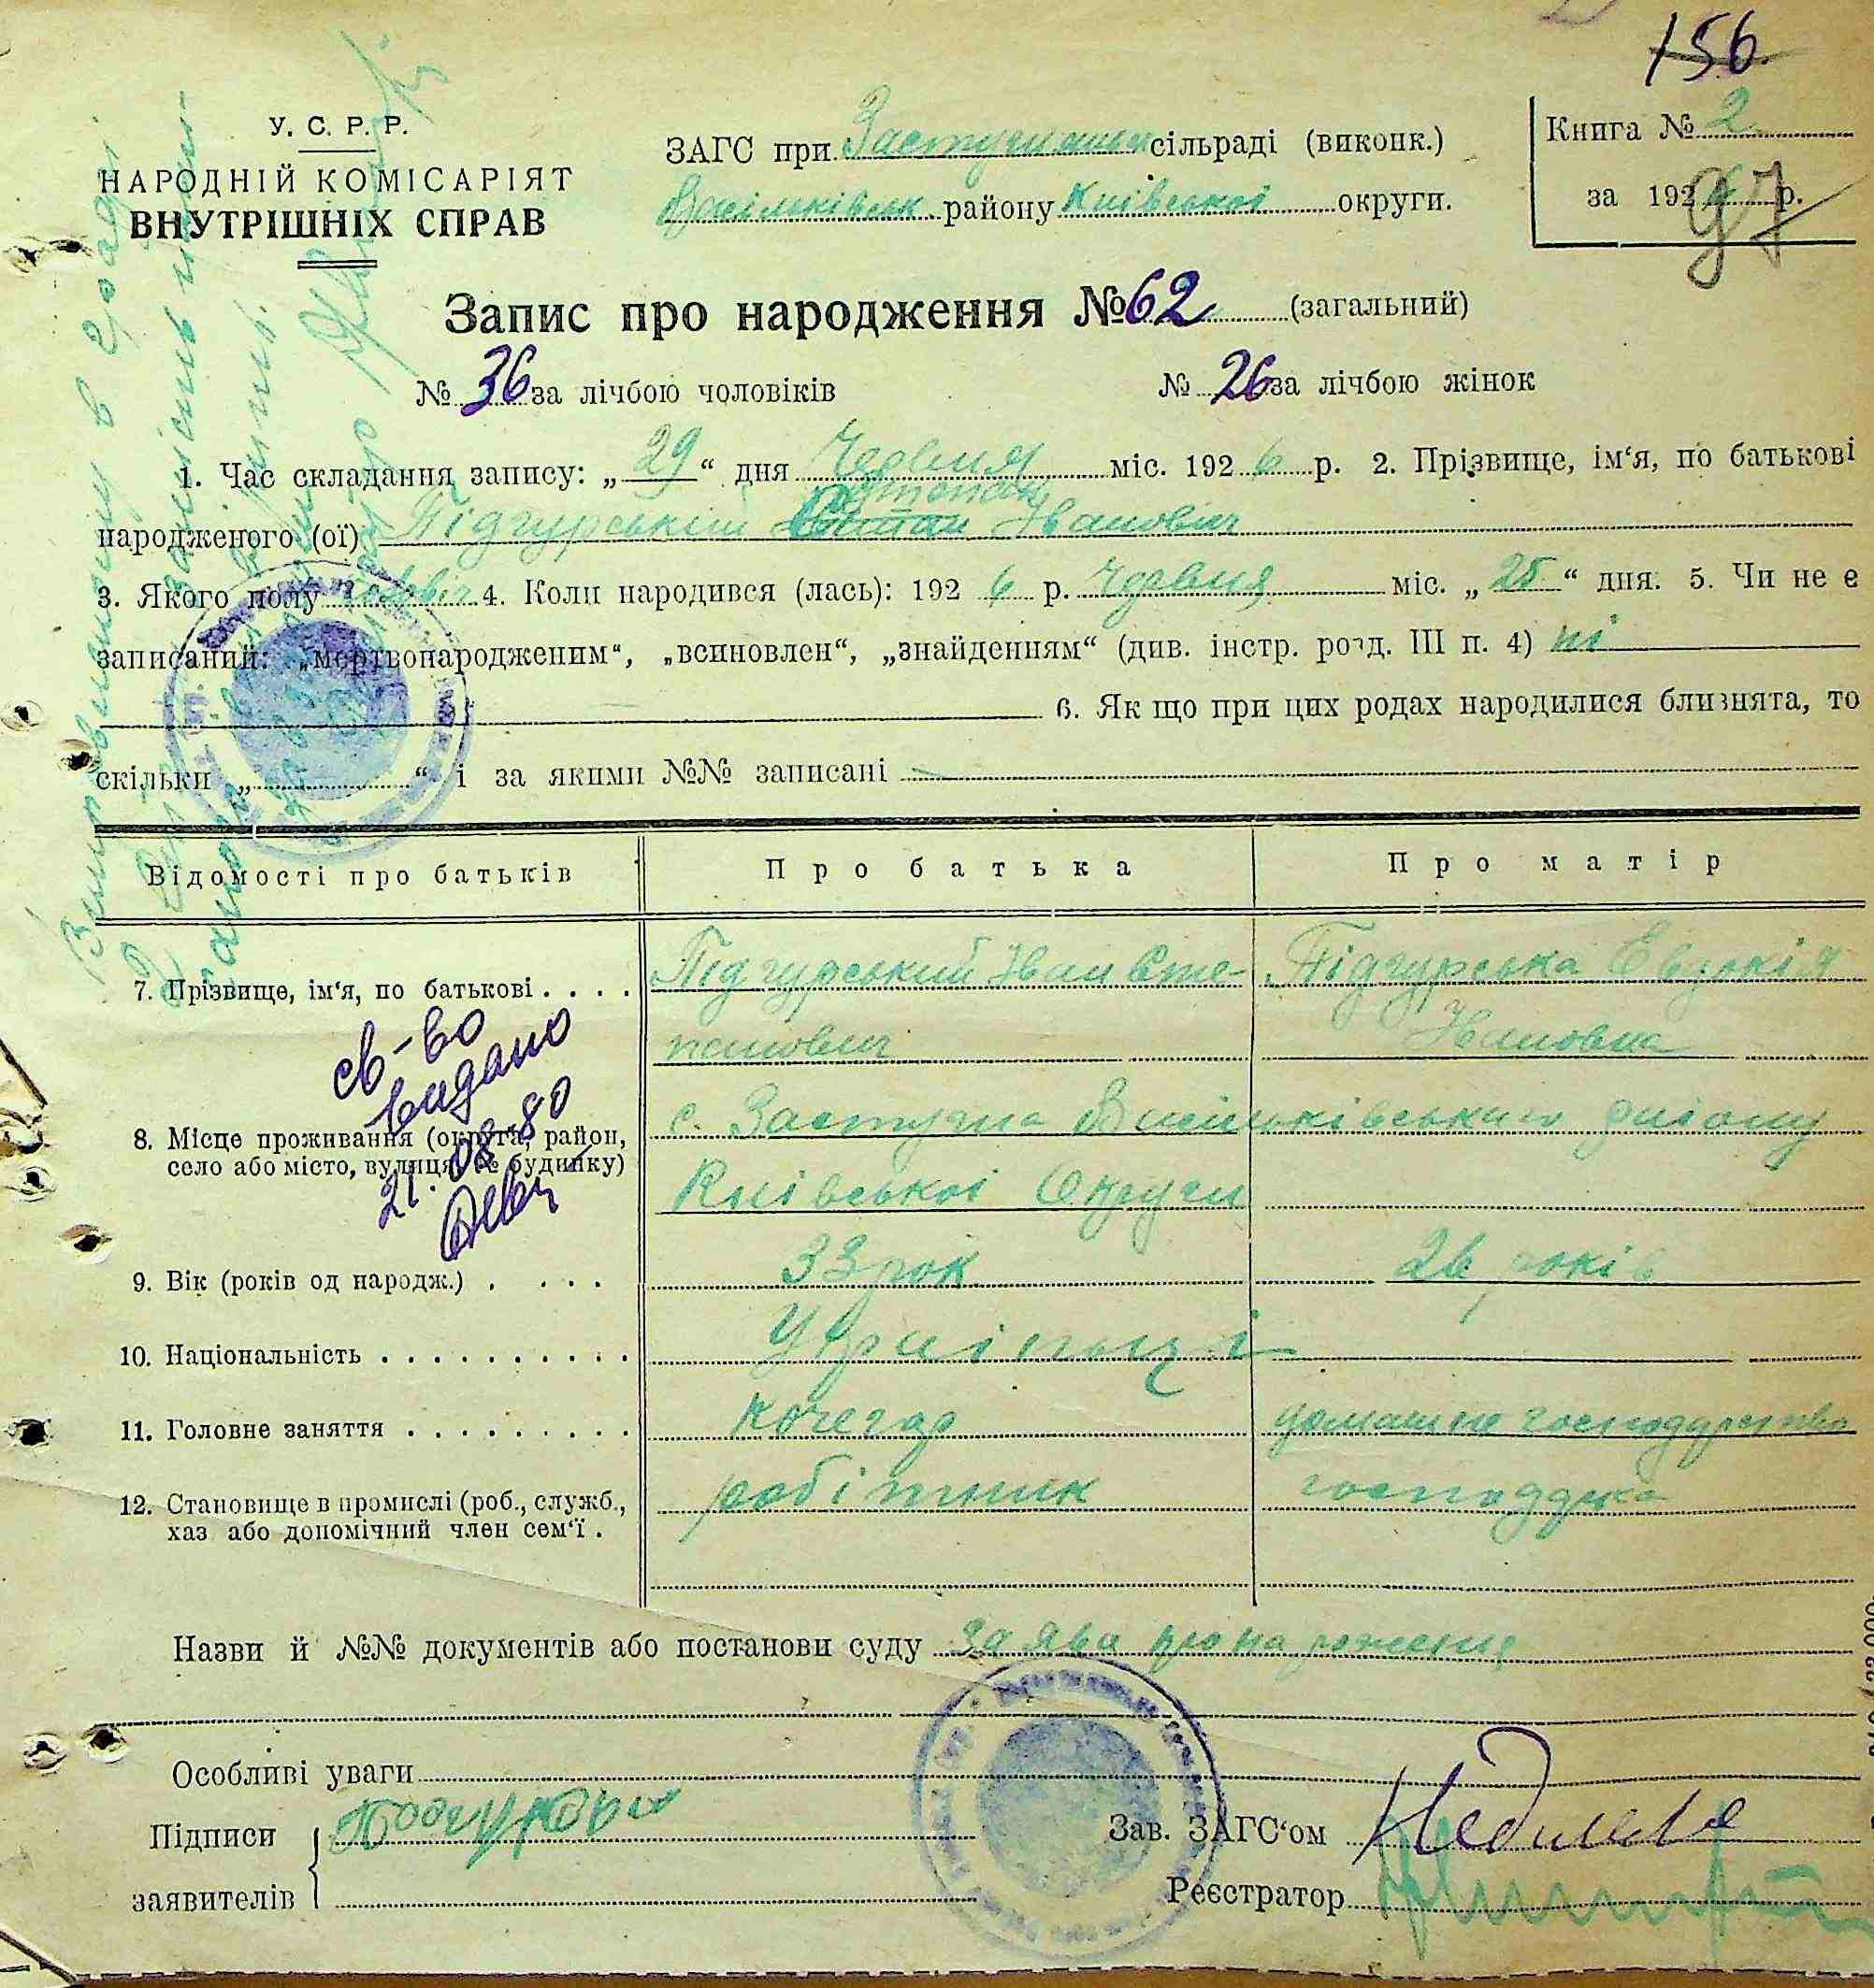 156
У. С. Р. Р.
НАРОДНІЙ КОМІСАРІЯТ
ВНУТРІШНІХ СПРАВ
ЗАГС при сільраді (виконк.)
Васильківськ. району Київської округи.
Книга № 2
за 1926 р.
97
Запис про народження № 62 (загальний)
№ 36 за лічбою чоловіків
№ 26 за лічбою жінок
1. Час складання запису: „ 29 “ дня Червня міс. 192 6 р. 2. Прізвище, ім‘я, по батькові
народженого (ої) Підгурський Іванович
3. Якого полу 4. Коли народився (лась): 192 6 р. Червня міс. „ 25 “ дня. 5. Чи не є
записаний: „мертвонародженим“, „всиновлен“, „знайденням“ (див. інстр. розд. III п. 4) ні
6. Як що при цих родах народилися близнята, то
скільки „ “ і за якими №№ записані
Відомості про батьків
Про батька
Про матір
7. Прізвище, ім‘я, по батькові . . . .
Підгурський Иван Сте-
панович
Підгурська Евдокія
Ивановна
св-во
видано
21.08.80
8. Місце проживання (округа, район,
село або місто, вулиця, № будинку)
с. Застугна Васильківського району
Київської Округи
9. Вік (років од народж.) . . . .
33 рок
26 років
10. Національність . . . . . . . . . .
Українці
11. Головне заняття . . . . . . . . .
кочегар
домашне господарство
12. Становище в промислі (роб., служб.,
хаз або допомічний член сем‘ї .
робітник
Назви й №№ документів або постанови суду заява про
Особливі уваги
Підписи
заявителів
Зав. ЗАГС‘ом
Реєстратор